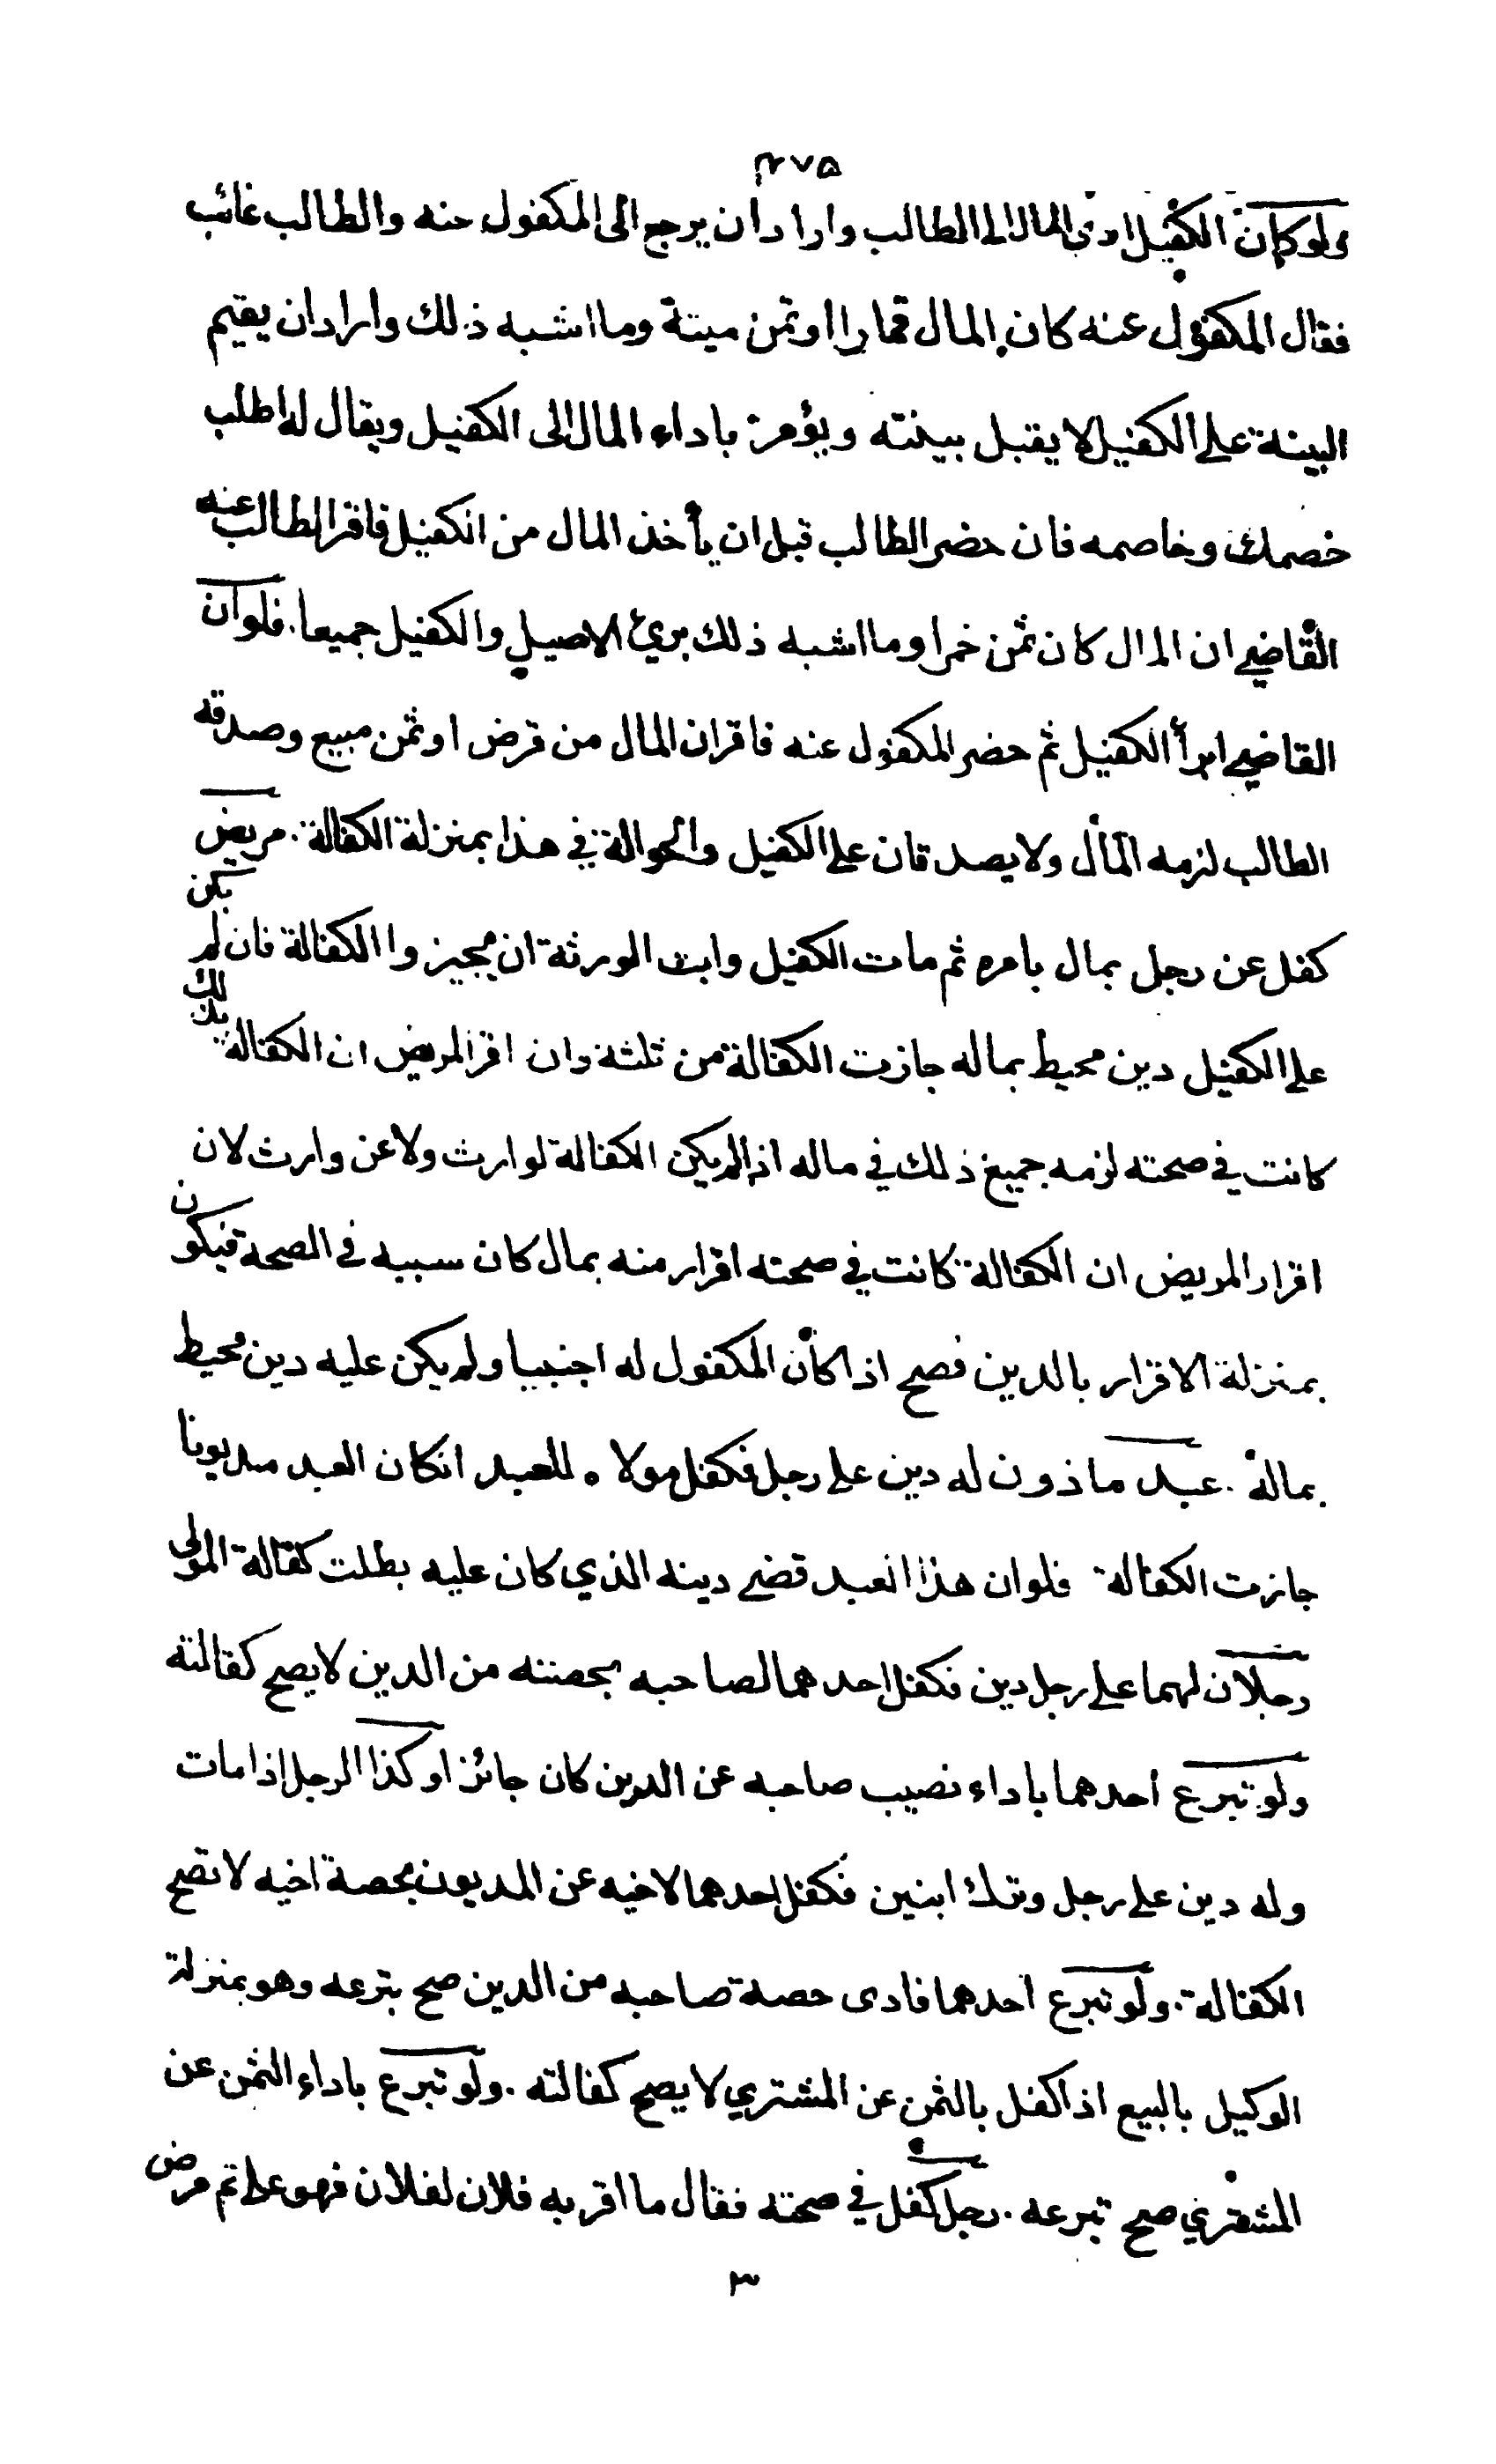 ٤٧٥
ولو كان الكفيل ادى المال الى الطالب واراد ان يرجع الى المكفول عنه والطالب غائب
فقال المكفول عنه كان المال قمارا او ثمن ميتة وما اشبه ذلك واراد ان يقيم
البينة على الكفيل لا يقبل بينته ويؤمر باداء المال الى الكفيل ويقال له اطلب
خصمك وخاصمه فان حضر الطالب قبل ان يأخذ المال من الكفيل فاقر الطالب عند
القاضي ان المال كان ثمن خمر او ما اشبه ذلك برئ الاصيل والكفيل جميعا. فلو ان
القاضي ابرأ الكفيل ثم حضر المكفول عنه فاقر ان المال من قرض او ثمن مبيع وصدقه
الطالب لزمه المال ولا يصدقان على الكفيل والحوالة في هذا بمنزلة الكفالة. مريض
كفل عن رجل بمال بامره ثم مات الكفيل وابت الورثة ان يجيزوا الكفالة فان لم يكن
على الكفيل دين محيط بماله جازت الكفالة من ثلثه وان اقر المريض ان الكفالة
كانت في صحته لزمه جميع ذلك في ماله اذا لم يكن الكفالة لوارث ولا عن وارث لان
اقرار المريض ان الكفالة كانت في صحته اقرار منه بمال كان سببه في الصحة فيكون
بمنزلة الاقرار بالدين فصح اذا كان المكفول له اجنبيا ولم يكن عليه دين محيط
بماله. عبد ماذون له دين على رجل فكفل مولاه للعبد انكان العبد مديونا
جازت الكفالة فلو ان هذا العبد قضى دينه الذي كان عليه بطلت كفالة المولى
رجلان لهما على رجل دين فكفل احدهما لصاحبه بحصته من الدين لا يصح كفالته
ولو تبرع احدهما باداء نصيب صاحبه عن الدين كان جائزا وكذا الرجل اذا مات
وله دين على رجل وترك ابنين فكفل احدهما لاخيه عن المديون بحصة اخيه لا تصح
الكفالة. ولو تبرع احدهما فادى حصة صاحبه من الدين صح تبرعه وهو بمنزلة
الوكيل بالبيع اذا كفل بالثمن عن المشتري لا يصح كفالته. ولو تبرع باداء الثمن عن
المشتري صح تبرعه. رجل كفل في صحته فقال ما اقر به فلان لفلان فهو على ثم مرض
٣